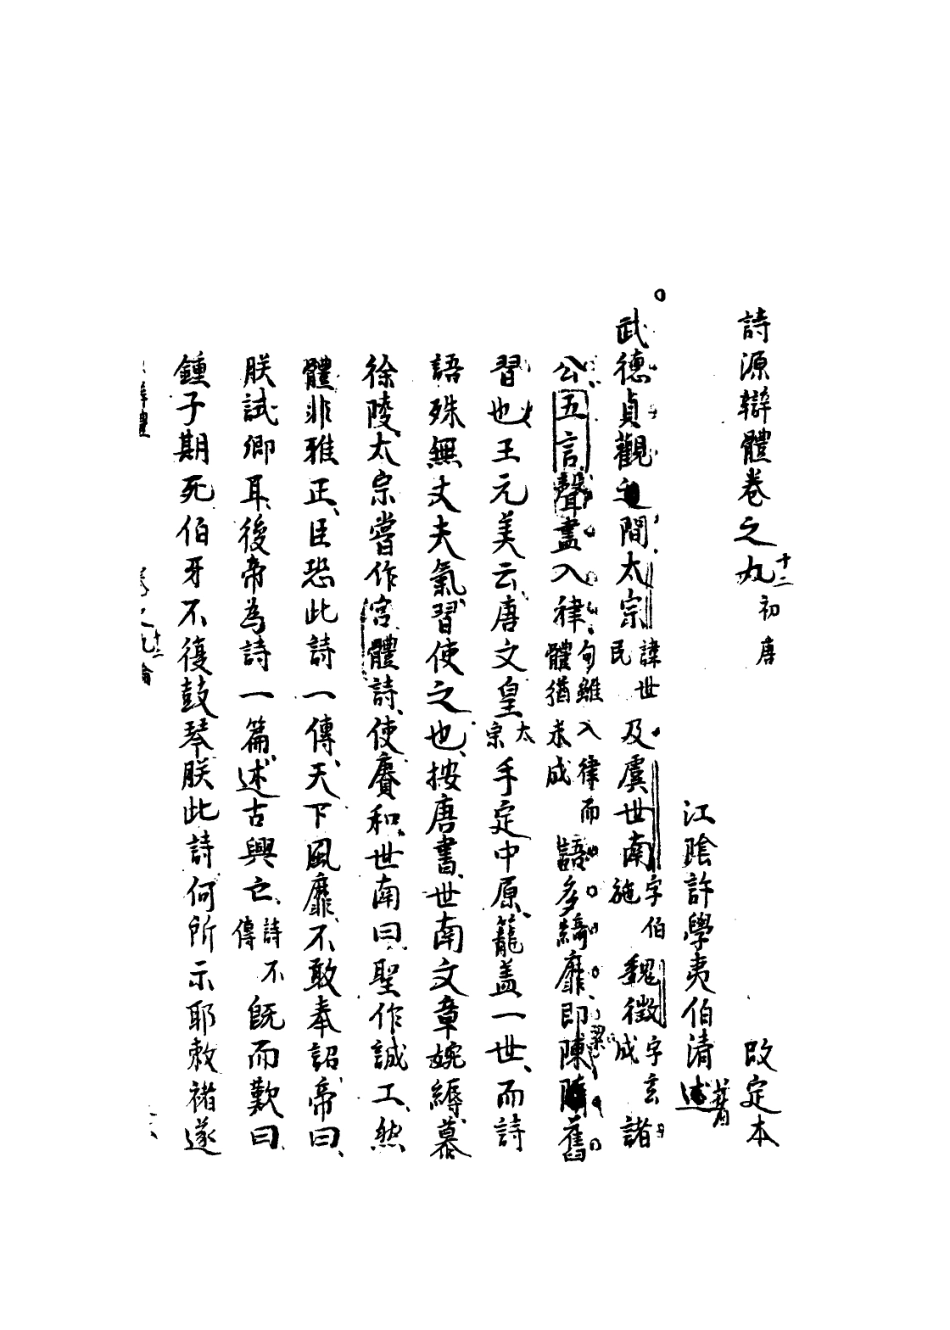 詩源辯體卷之九十二 初唐 改定本
江陰許學夷伯清述著
武德貞觀之間太宗諱世民及虞世南字伯施魏徵字玄成諸
公五言聲盡入律句雖入律而體猶未成語多綺靡即陳隋舊
習也王元美云唐文皇太宗手定中原籠盖一世而詩
語殊無丈夫氣習使之也按唐書世南文章婉縟慕
徐陵太宗嘗作宮體詩使賡和世南曰聖作誠工然
體非雅正臣恐此詩一傳天下風靡不敢奉詔帝曰
朕試卿耳後帝為詩一篇述古興亡詩不傳既而歎曰
鍾子期死伯牙不復鼓琴朕此詩何所示耶敕褚遂